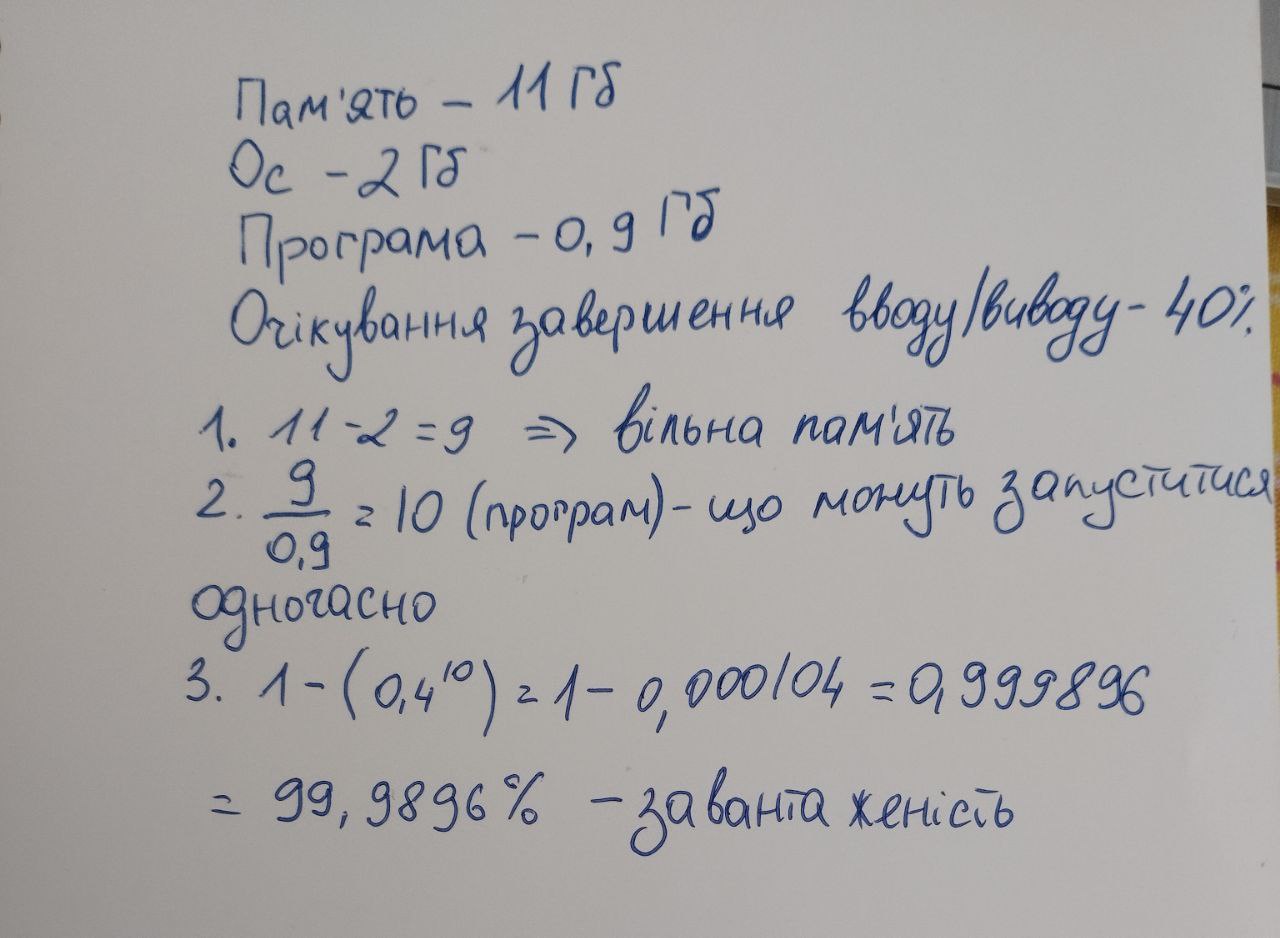 Пам'ять – 11 Гб
Ос – 2 Гб
Програма – 0,9 Гб
Очікування завершення вводу/виводу – 40%
1. 11 - 2 = 9 => вільна пам'ять
2. 9/0,9 = 10 (програм) – що можуть запуститися
одночасно
3. 1 - (0,4^10) = 1 - 0,000104 = 0,999896
= 99,9896% – завантаженість